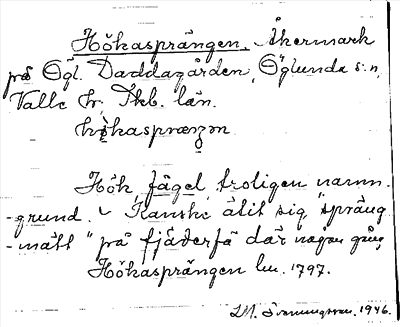 Hökasprängen, Åkermark
på Ögl. Daddagården, Öglunda s:n,
Valle hd. Skb. län.
Hök, fågel, troligen namn-
-grund. Kanske ätit sig "spräng
-mätt" på fjäderfä där någon gång
Hökasprängen lm. 1797.
LM. Svenungsson. 1946.